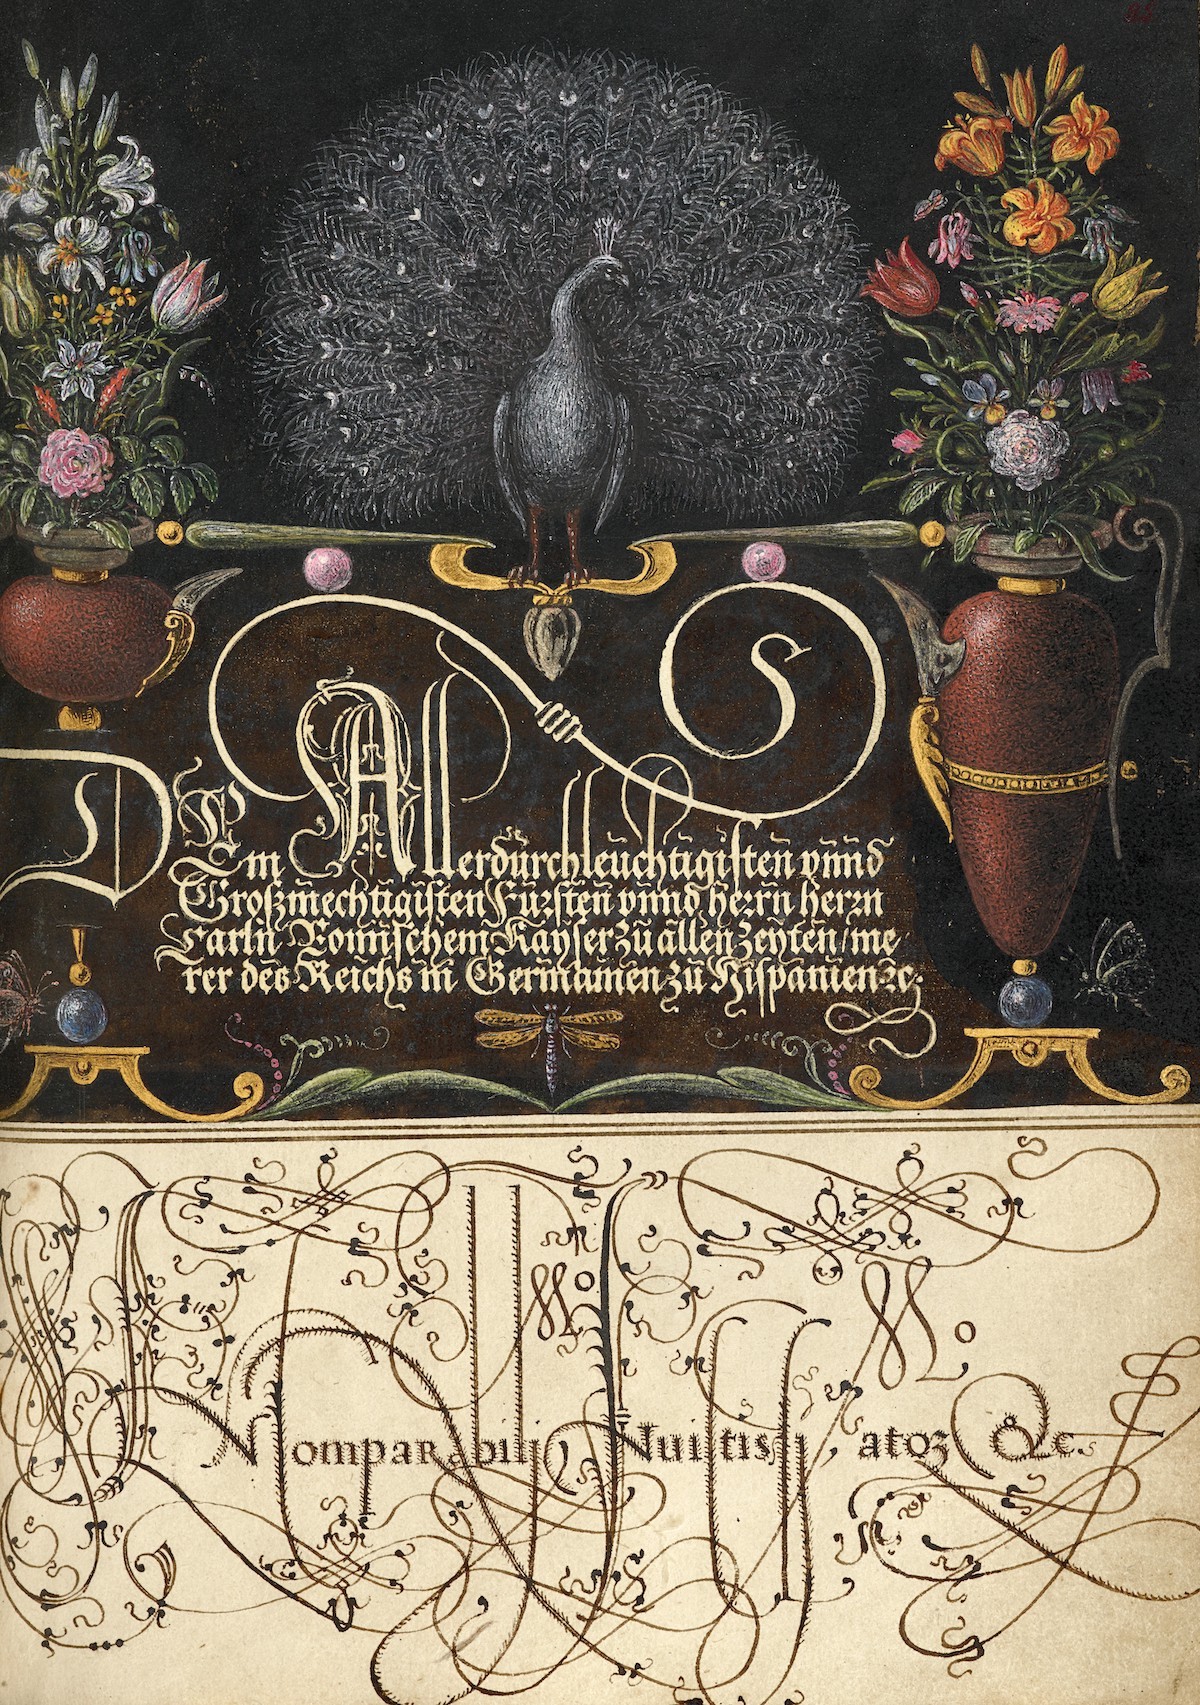 S
Dem Allerdürchleüchtigisten vnnd
Großmechtigisten Fürsten vnnd herrn herrn
Carln Römischem Kayser zü allen Zeyten / me
rer des Reichs in Germanien zü Hispanien ꝛc.
Incomparabili Inuictiss.